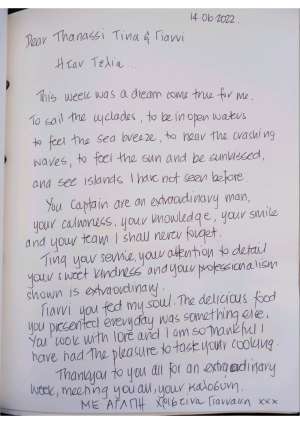 14.06.2022.
Dear Thanassi Tina & Γιαννη
Ηταν Τελια...
This week was a dream come true for me.
To sail the cyclades, to be in open waters
to feel the sea breeze, to hear the crashing
waves, to feel the sun and be sunkissed,
and see islands I have not seen before
You Captain are an extraordinary man,
your calmness, your knowledge, your smile
and your team I shall never forget.
Tina your service, your attention to detail
your sweet kindness and your professionalism
shown is extraordinary.
Γιαννη you fed my soul. The delicious food
you presented everyday was something else.
You cook with love and I am so thankful I
have had the pleasure to taste your cooking.
Thankyou to you all for an extraordinary
week, meeting you all, your καλοσυνη.
ΜΕ ΑΓΑΠΗ Χριστινα xxx